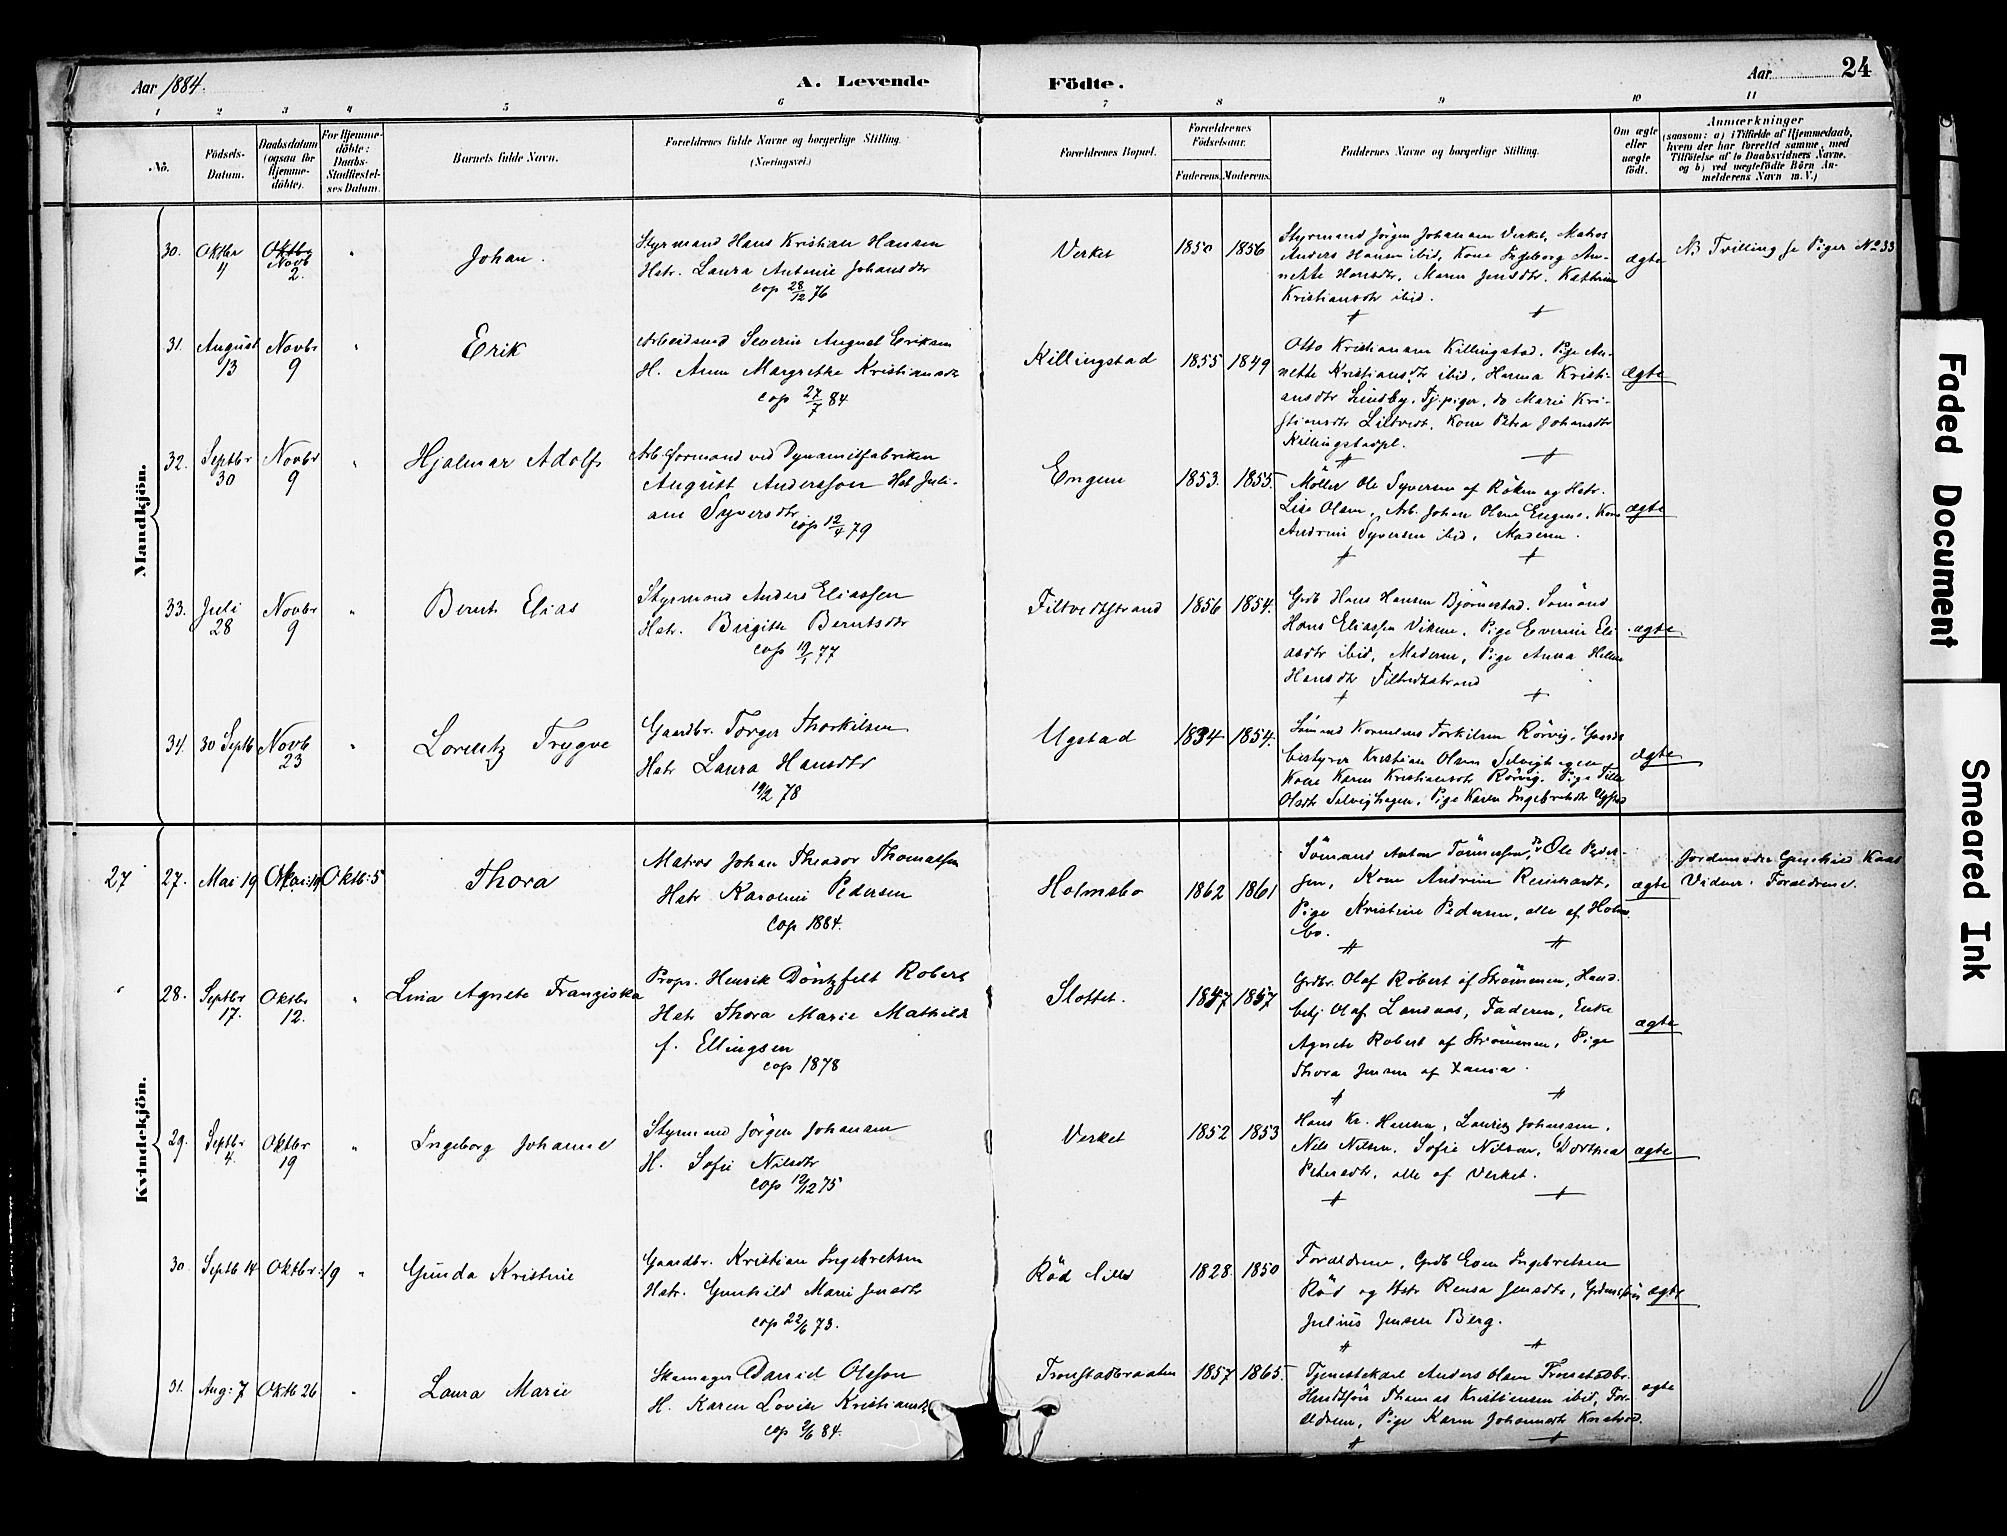 Aar 1884.
A. Levende
Födte.
Aar
24
1 2 3 4 5 6 7 8 9 10 11
No.
Födsels-
Datum.
Daabsdatum
(ogsaa for
Hjemme-
döbte).
For Hjemme-
döbte:
Daabs-
Stadfæstel-
ses Datum.
Barnets fulde Navn.
Forældrenes fulde Navne og borgerlige Stilling.
(Næringsvei.)
Forældrenes Bopæl.
Forældrenes
Födselsaar.
Faderens. Moderens.
Faddernes Navne og borgerlige Stilling.
Om ægte
eller
uægte
födt.
Anmærkninger
(saasom: a) i Tilfælde af Hjemmedaab,
hvem der har forrettet samme, med
Tilföielse af to Daabsvidners Navne,
og b) ved uægtefödte Börn An-
melderens Navn m. V.)
Mandkjön.
30.
Oktbr
4
Oktbr
Novb
2.
"
Johan.
Styrmand Hans Kristian Hansen
Hstr. Laura Antonie Johansdtr
cop 28/12 76
Verket
1850
1856
Styrmand Jörgen Johansen Verket, Matros
Anders Hansen ibid, Kone Ingeborg An-
nette Hansdtr, Maren Jensdtr. Kathrine
Kristiansdtr ibid.
ægte
NB Tvilling se Piger No 33
31.
August
13
Novbr
9
"
Erik
Arbeidsmd Severin August Eriksen
H. Anne Margrethe Kristiansdtr
cop 27/7 84
Killingstad
1855
1849
Otto Kristiansen Killingstad. Pige An-
nette Kristiansdtr ibid, Hanna Kristi-
ansdtr Sundby, Tj.piger, do Marie Kri-
stiansdtr Liltvedt, Kone Petra Johansdtr
Killingstadpl.
ægte
32.
Septbr
30
Novbr
9
"
Hjalmar Adolf
Arb.formand ved Dynamitfabriken
August Andersson Hst Juli-
ane Syversdtr
cop 12/4 79
Engene
1853.
1855.
Möller Ole Syversen af Röken og Hstr.
Lise Olsen, Arb. Johan Olsen Engene, Kone
Andrine Syversen ibid, Moderen.
ægte
33.
Juli
28
Novbr
9
"
Bernt Elias
Styrmand Anders Eliassen
Hstr. Birgitte Berntsdtr
cop 19/1 77
Filtvedtstrand
1856
1854.
Grdb Hans Hansen Björnestad. Sömand
Hans Eliassen Vikene, Pige Evernie Eli-
asdtr ibid, Moderen, Pige Anna Helene
Hansdtr Filtvedtstrand
ægte
34.
30 Septb
Novb
23
"
Lorentz Trygve
Gaardbr. Torger Thorkilsen
Hstr Laura Hansdtr
19/2 78
Ugstad
1834
1854.
Sömand Kornelius Torkilsen Rörvig, Gaards-
bestyrer Kristian Olsen Selvighagen
Kone Karen Kristiansdtr Rörvig. Pige
Olsdtr Selvighagen, Pige Karen Ingebretsdtr Ugstad
ægte
Kvindekjön.
27
27.
Mai 19
Mai: 19
Oktb: 5
Thora
Matros Johan Theodor Thomassen
Hstr Karoline Pedersen
Cop 1884.
Holmsbo
1862
1861
Sömand Anton Tönnessen, do Ole Peder-
sen, Kone Andrine Reinhardt,
Pige Kristine Pedersen, alle af Holms-
bo.
ægte
Jordmoder Gunhild Kaas
Vidner: Forældrene.
28.
Septbr
17.
Oktbr
12.
"
Lina Agnete Franziska
Propr. Henrik Döntzfelt Robert
Hstr Thora Marie Mathilde
f. Ellingsen
cop 1878
Slottet.
1847
1857
Grdbr. Olaf Robert af Strömmen, Hand.
betj Olaf Landaas, Faderen, Enke
Agnete Robert af Strömmen, Pige
Thora Jensen af Xania.
ægte
29.
Septbr
4.
Oktbr
19
"
Ingeborg Johanne
Styrmand Jörgen Johansen
H. Sofie Nilsdtr
cop 19/12 75
Verket
1852
1853
Hans Kr. Hansen, Lauritz Johansen,
Nils Nilsen, Sofie Nilsen, Dorthea
Petersdtr, alle af Verket.
ægte
30
Septb 14
Oktbr: 19
"
Gunda Kristine
Gaardbr. Kristian Ingebretsen
Hstr. Gunhild Marie Jensdtr
cop 22/6 73.
Röd lille
1828.
1850
Forældrene, Grdb Even Ingebretsen
Röd og Hstr Rensa Jensdtr, Grdmdsön
Julius Jensen Berg.
ægte
31.
Aug: 7
Oktb 26
"
Laura Marie
Skomager Daniel Olsson
H. Karen Lovise Kristiansdtr
cop 9/6 84.
Tronstadbraaten
1857
1865.
Tjenestekarl Anders Olsen Tronstadbr.
Husmdsön Thomas Kristiansen ibid, For-
ældrene, Pige Karen Johannesdtr
ægte
Faded Document
Smeared Ink